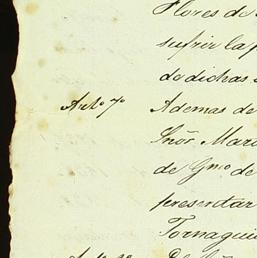 Flores de
sufrir la p
do dichas
Arto 7o Ademas de
Señr. Mari
de Gmo de
presentar
Tornagui